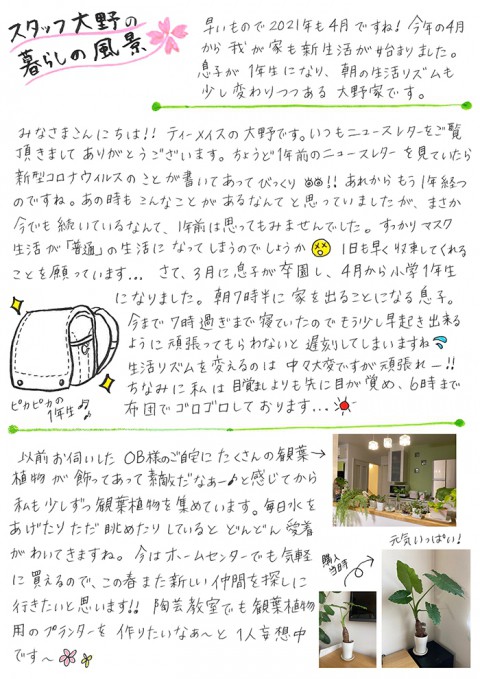 スタッフ大野の
暮らしの風景
早いもので2021年も4月ですね!今年の4月
から我が家も新生活が始まりました。
息子が1年生になり、朝の生活リズムも
少し変わりつつある大野家です。
みなさまこんにちは!!ティーメイスの大野です。いつもニュースレターをご覧
頂きましてありがとうございます。ちょうど1年前のニュースレターを見ていたら
新型コロナウイルスのことが書いてあってびっくり!!あれからもう1年経つ
のですね。あの時もこんなことがあるなんてと思っていましたが、まさか
今でも続いているなんて、1年前は思ってもみませんでした。すっかりマスク
生活が「普通」の生活になってしまうのでしょうか 1日も早く収束してくれる
ことを願っています... さて、3月に息子が卒園し、4月から小学1年生
になりました。朝7時半に家を出ることになる息子。
今まで7時過ぎまで寝ていたのでもう少し早起き出来る
ように頑張ってもらわないと遅刻してしまいますね
生活リズムを変えるのは中々大変ですが頑張れー!!
ちなみに私は目覚ましよりも先に目が覚め、6時まで
布団でゴロゴロしております...
ピカピカの
1年生♪
以前お伺いしたOB様のご自宅にたくさんの観葉→
植物が飾ってあって素敵だなぁ〜♪と感じてから
私も少しずつ観葉植物を集めています。毎日水を
あげたりただ眺めたりしているとどんどん愛着
がわいてきますね。今はホームセンターでも気軽
に買えるので、この春また新しい仲間を探しに
行きたいと思います!!陶芸教室でも観葉植物
用のプランターを作りたいなぁ〜と1人妄想中
です〜
元気いっぱい!
購入
当時